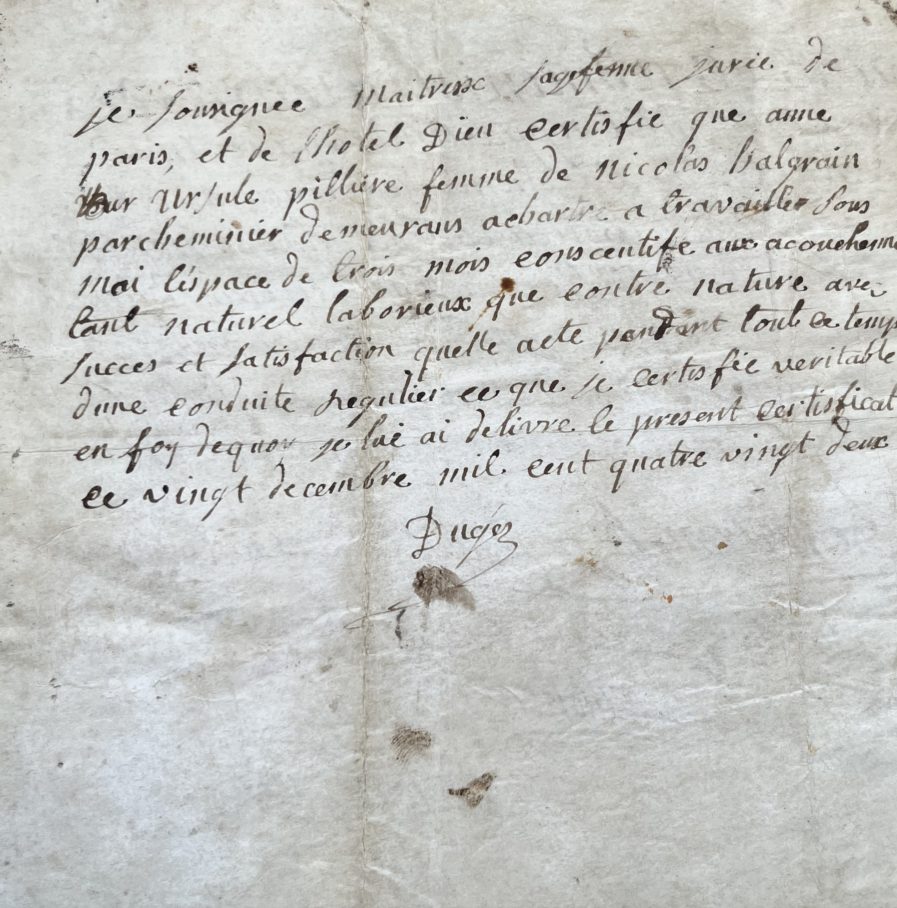 je sousignee maitresse sagefemme jurée de
paris, et de lhotel Dieu certisfie que anne
ursule pilliere femme de nicolas halgrain
parcheminier demeurans achartre a travailler sous
moi léspace de trois mois conscentife aux acouchem
tant naturel laborieux que contre nature avec
succes et satisfaction quelle acte pendant tout ce temps
dune conduite regulier ce que je certisfie veritable
en foy dequoy je lui ai delivre le present certisficat
ce vingt decembre mil cent quatre vingt deux
Dugès